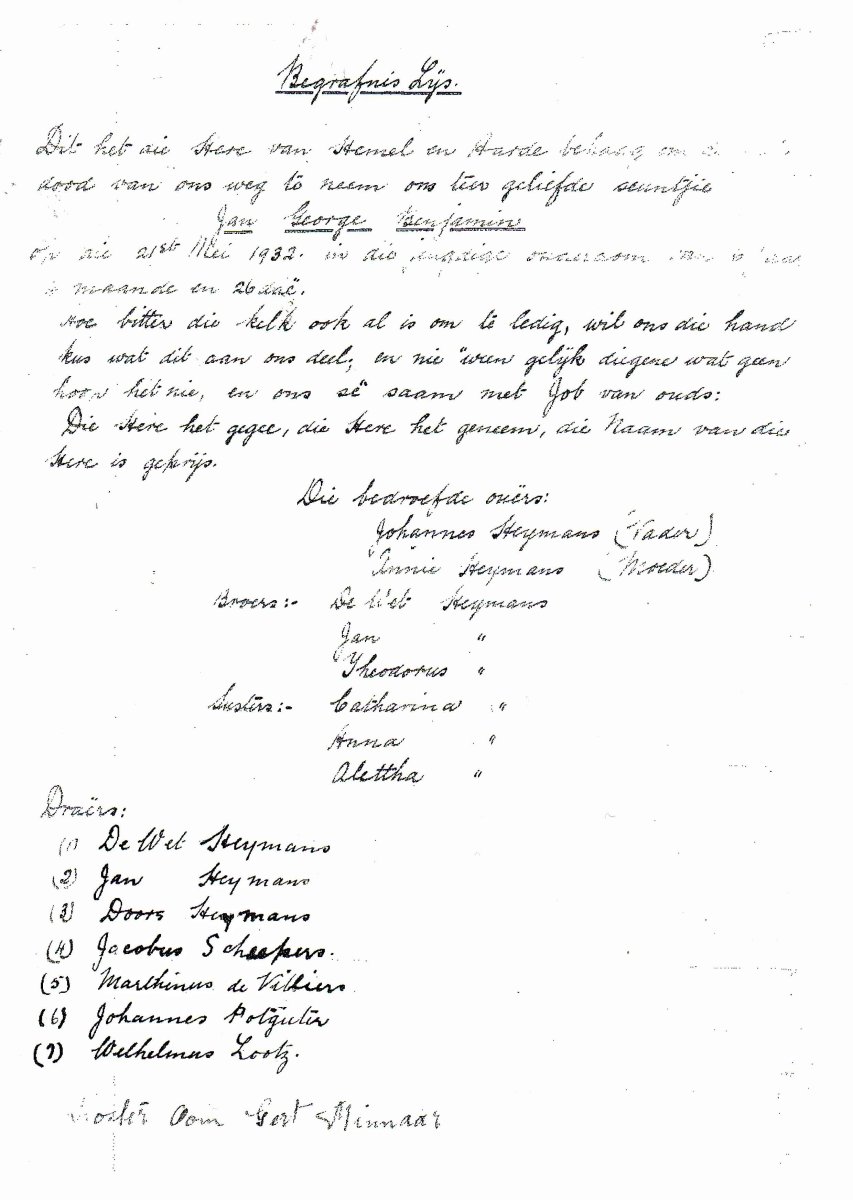 Begrafnis Lijs.
Dit het die Here van Hemel en Aarde behaag om
dood van ons weg te neem ons teer geliefde seuntjie
Jan George Benjamin
op die 21st Mei 1932. in die jeugdige ouderdom van
maande en 26 daë.
Hoe bitter die kelk ook al is om te ledig, wil ons die hand
kus wat dit aan ons deel; en nie ween gelijk diegene wat geen
hoop het nie, en ons sê saam met Job van ouds:
Die Here het gegee, die Here het geneem, die Naam van die
Here is geprijs.
Die bedroefde ouërs:
Johannes Heymans (Vader)
Annie Heymans (Moeder)
Broers:- De Wet Heymans
Jan "
Theodorus "
Susters:- Catharina "
Anna "
Alettha "
Draërs:
(1) De Wet Heymans
(2) Jan Heymans
(3) Doors Heymans
(4) Jacobus Scheepers.
(5) Marthinus de Villiers
(6) Johannes Potguter
(7) Welhelmus Lootz.
Koster Oom Gert Minnaar